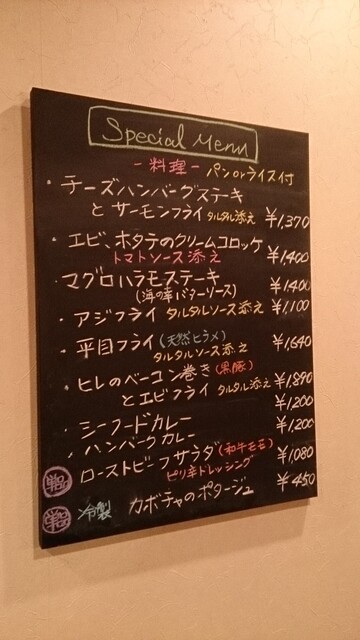 Special Menu
-料理- パンorライス付
・チーズハンバーグステーキ
とサーモンフライ タルタル添え ¥1,370
・エビ、ホタテのクリームコロッケ
トマトソース添え ¥1,400
マグロハラモステーキ ¥1,400
(海の幸バターソース)
・アジフライ タルタルソース添え ¥1,100
・平目フライ(天然ヒラメ) ¥1,640
タルタルソース添え
・ヒレのベーコン巻き(黒豚)
とエビフライ タルタル添え ¥1,890
・シーフードカレー ¥1,200
・ハンバーグカレー ¥1,200
単品 ローストビーフサラダ(和牛モモ) ¥1,080
ピリ辛ドレッシング
単品 冷製 カボチャのポタージュ ¥450